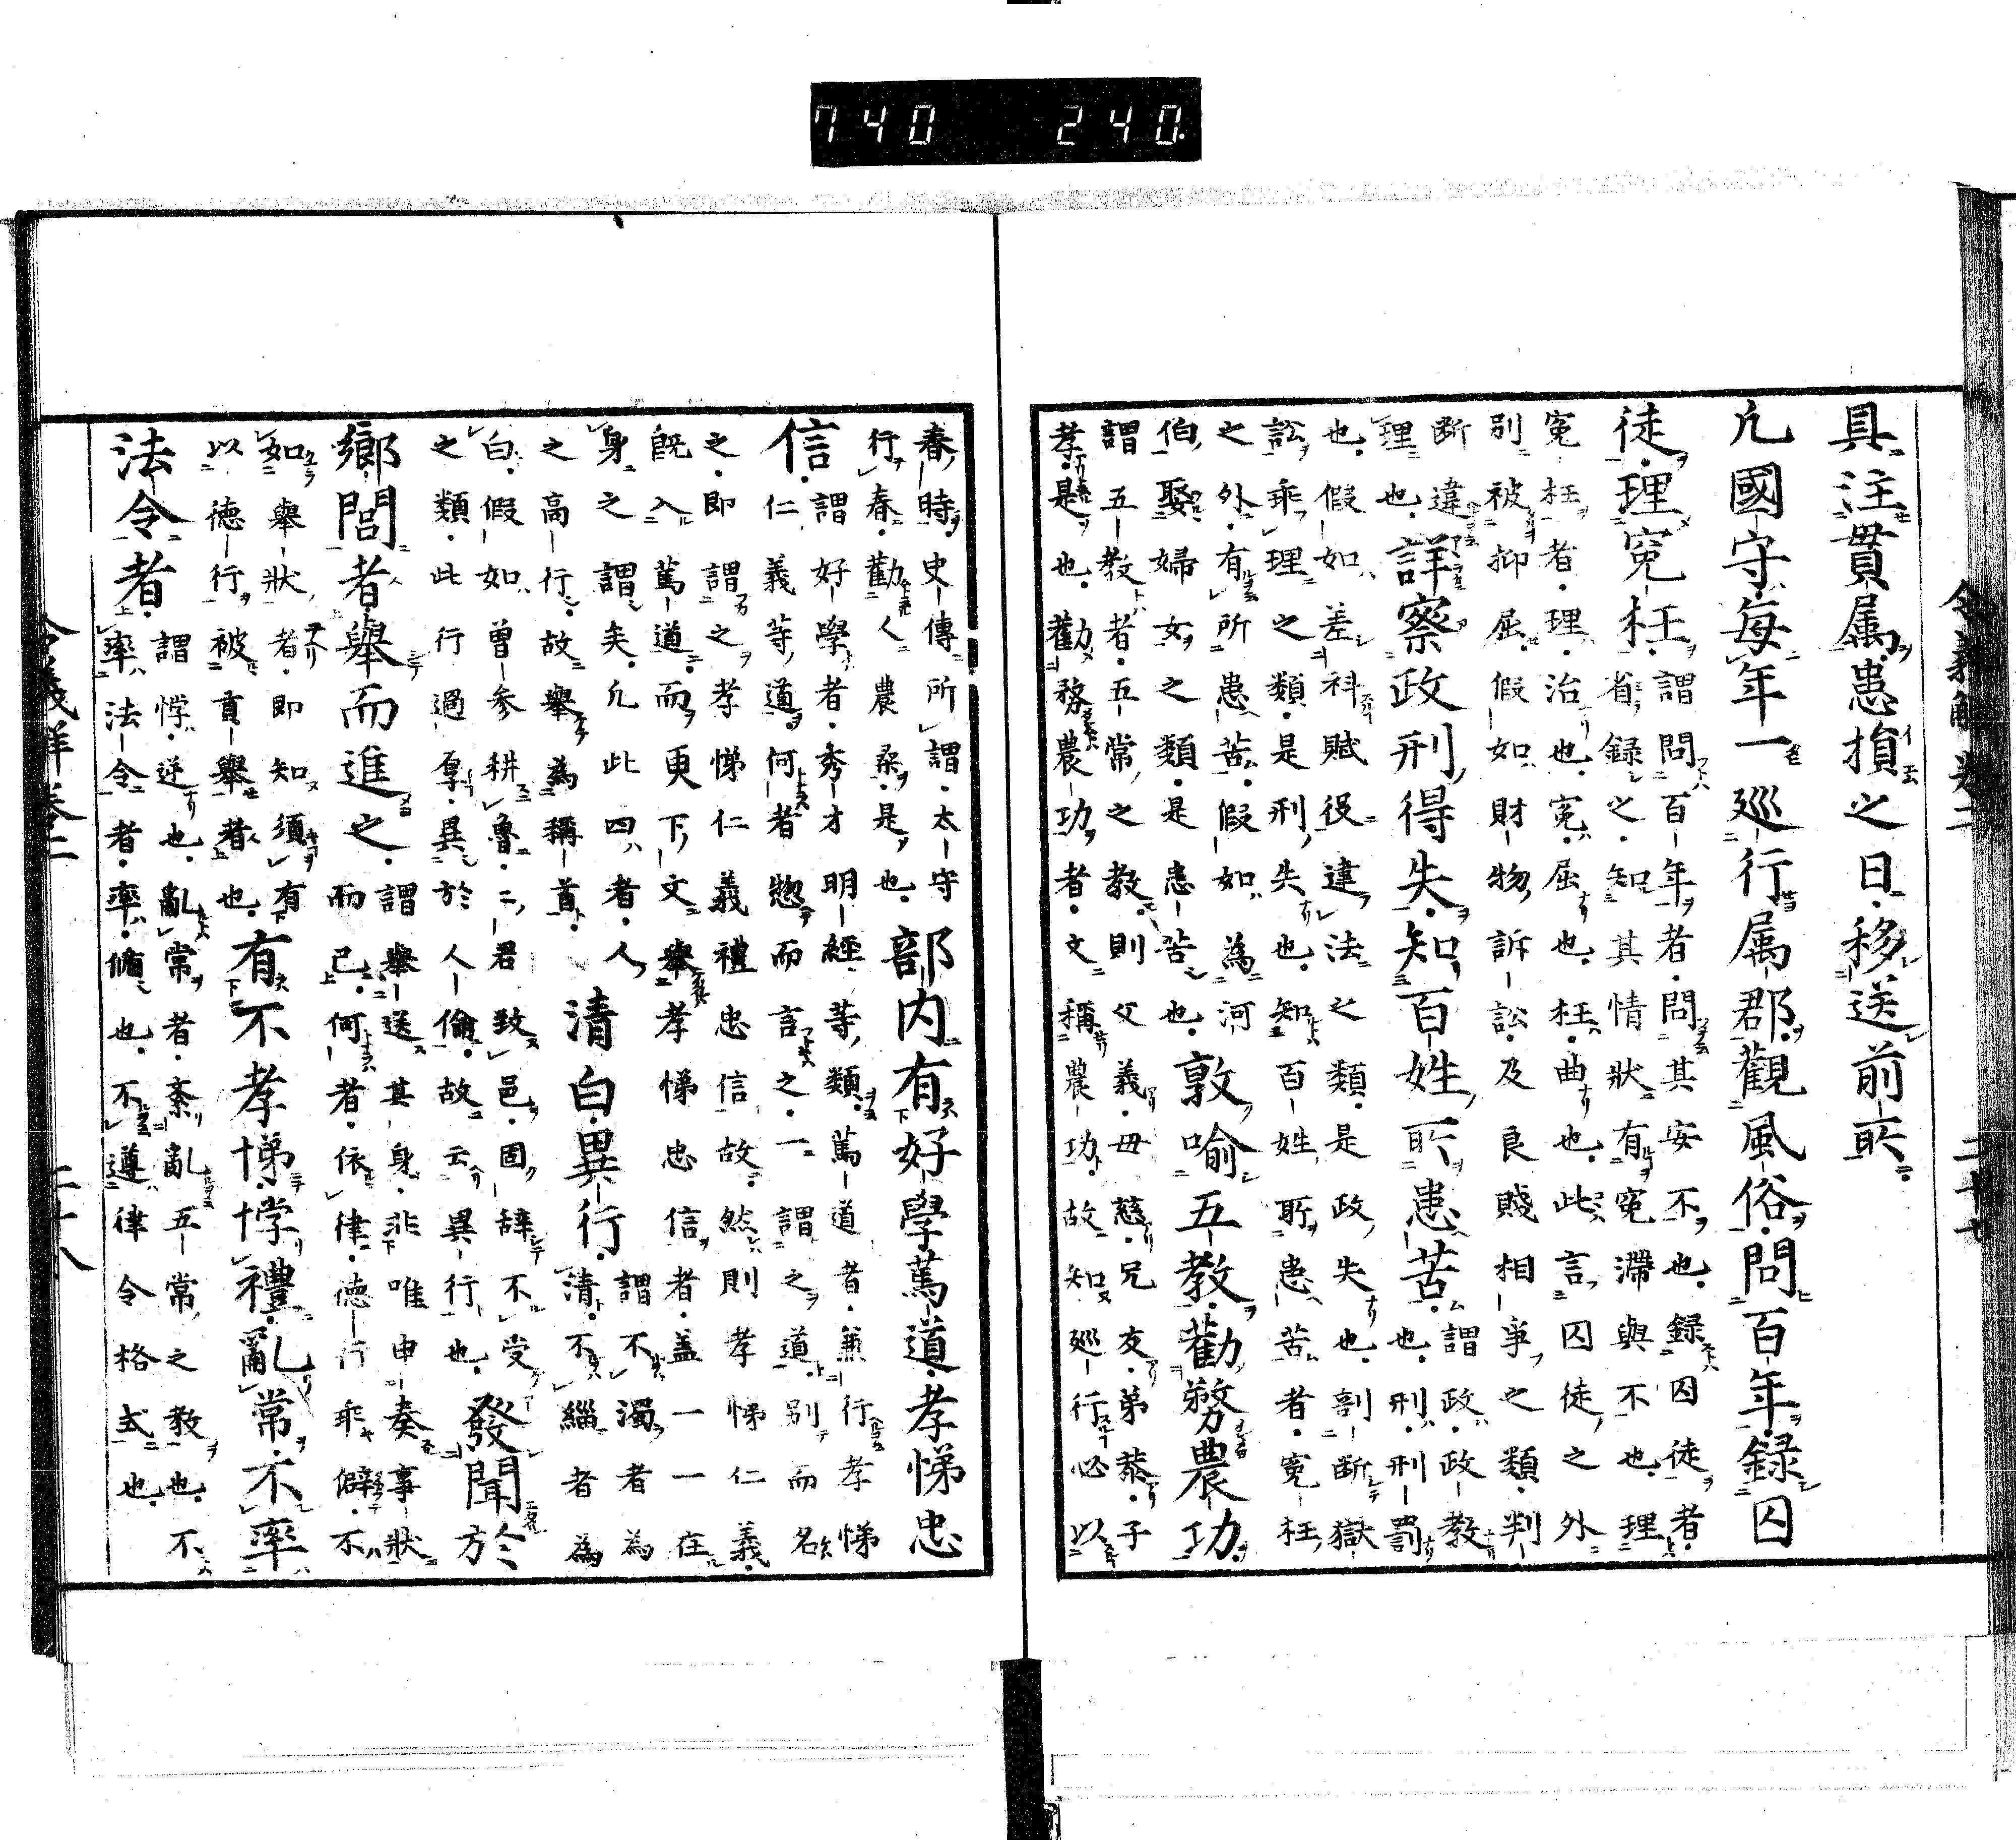 740 240.
具注貫属患損之日移送前所
凢國守毎年一廵行属郡觀風俗問百年録囚
徒理寃枉
謂問百年者問其安不也録囚徒者
省録之知其情狀有寃滯與不也理
寃枉者理治也寃屈也枉曲也此言囚徒之外
別被抑屈假如財物訴訟及良賤相爭之類判
断違
理也
詳察政刑得失知百姓所患苦
謂政政教
也刑刑罰
也假如差科賦役違法之類是政失也剖断獄
訟乖理之類是刑失也知百姓所患苦者寃枉
之外有所患苦假如為河
伯娶婦女之類是患苦也
敦喻五教勸務農功
謂五教者五常之教則父義母慈兄友弟恭子
孝是也勸務農功者文稱農功故知廵行必以
春時史傳所謂太守
行春勸人農桑是也
部内有好學篤道孝悌忠
信
謂好學者秀才明經等類篤道者兼行孝悌
仁義等道何者惣而言之一謂之道別而名
之即謂之孝悌仁義禮忠信故然則孝悌仁義
既入篤道而更下文舉孝悌忠信者盖一一在
身之謂矣凢此四者人
之高行故舉為稱首
清白異行
謂不濁者為
清不緇者為
白假如曽參耕魯二君致邑固辞不受
之類此行過厚異於人倫故云異行也
發聞於
鄉閭者舉而進之
謂舉送其身非唯申奏事狀
而已何者依律徳行乖僻不
如舉狀者即知須有
以徳行被貢舉者也
有不孝悌悖禮亂常不率
法令者
謂悖逆也亂常者紊亂五常之教也不
率法令者率脩也不遵律令格式也